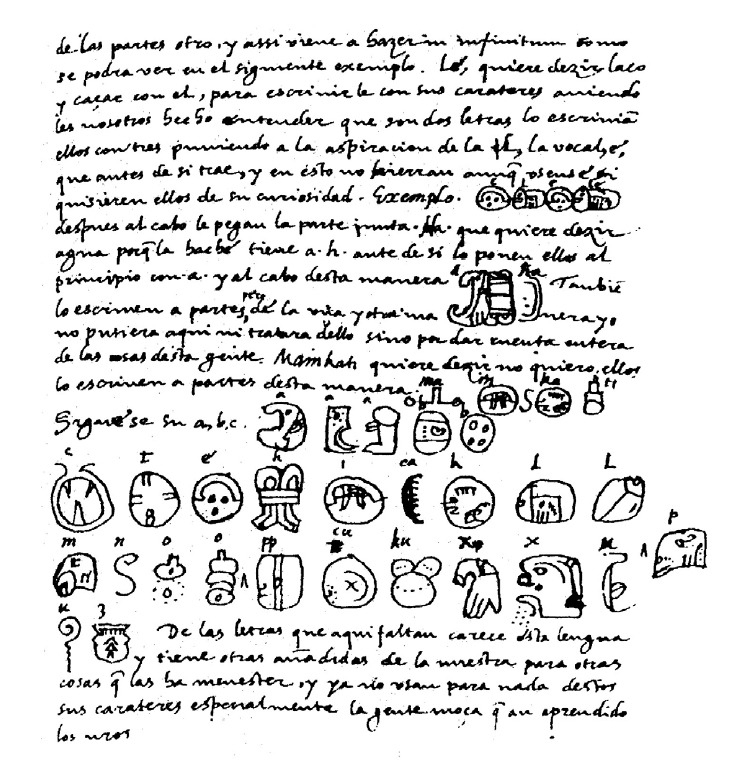 de las partes otro, y assi viene a hazer in infinitum como
se podra ver en el siguiente exemplo. Lé, quiere dezir laço
y caçar con el, para escrivirle con sus carateres aviendo
les nosotros hecho entender que son dos letras lo escrivian
ellos con tres puniendo a la aspiracion de la l, la vocal, é,
que antes de si trae, y en esto no hierran aunq̃ usense si
quisieren ellos de su curiosidad. Exemplo. e l e lé
despues al cabo le pegan la parte junta. Ha. que quiere dezir
agua porq̃ la hache tiene a. h. ante de si lo ponen ellos al
principio con a. y al cabo desta manera a ha Tambiē
lo escriven a partes pero de la una y otra ma nera yo
no pusiera aqui ni tratara dello sino por dar cuenta entera
de las cosas desta gente. Mainkati quiere dezir no quiero, ellos
lo escriven a partes desta manera. ma in ka ti
Siguese su a, b, c. a a a b b
c t é h i ca k l l
m n o o pp cu ku x x u p
u z De las letras que aqui faltan carece esta lengua
y tiene otras añadidas de la nuestra para otras
cosas q̃ las ha menester, y ya no usan para nada destos
sus carateres especialmente la gente moça q̃ an aprendido
los nros